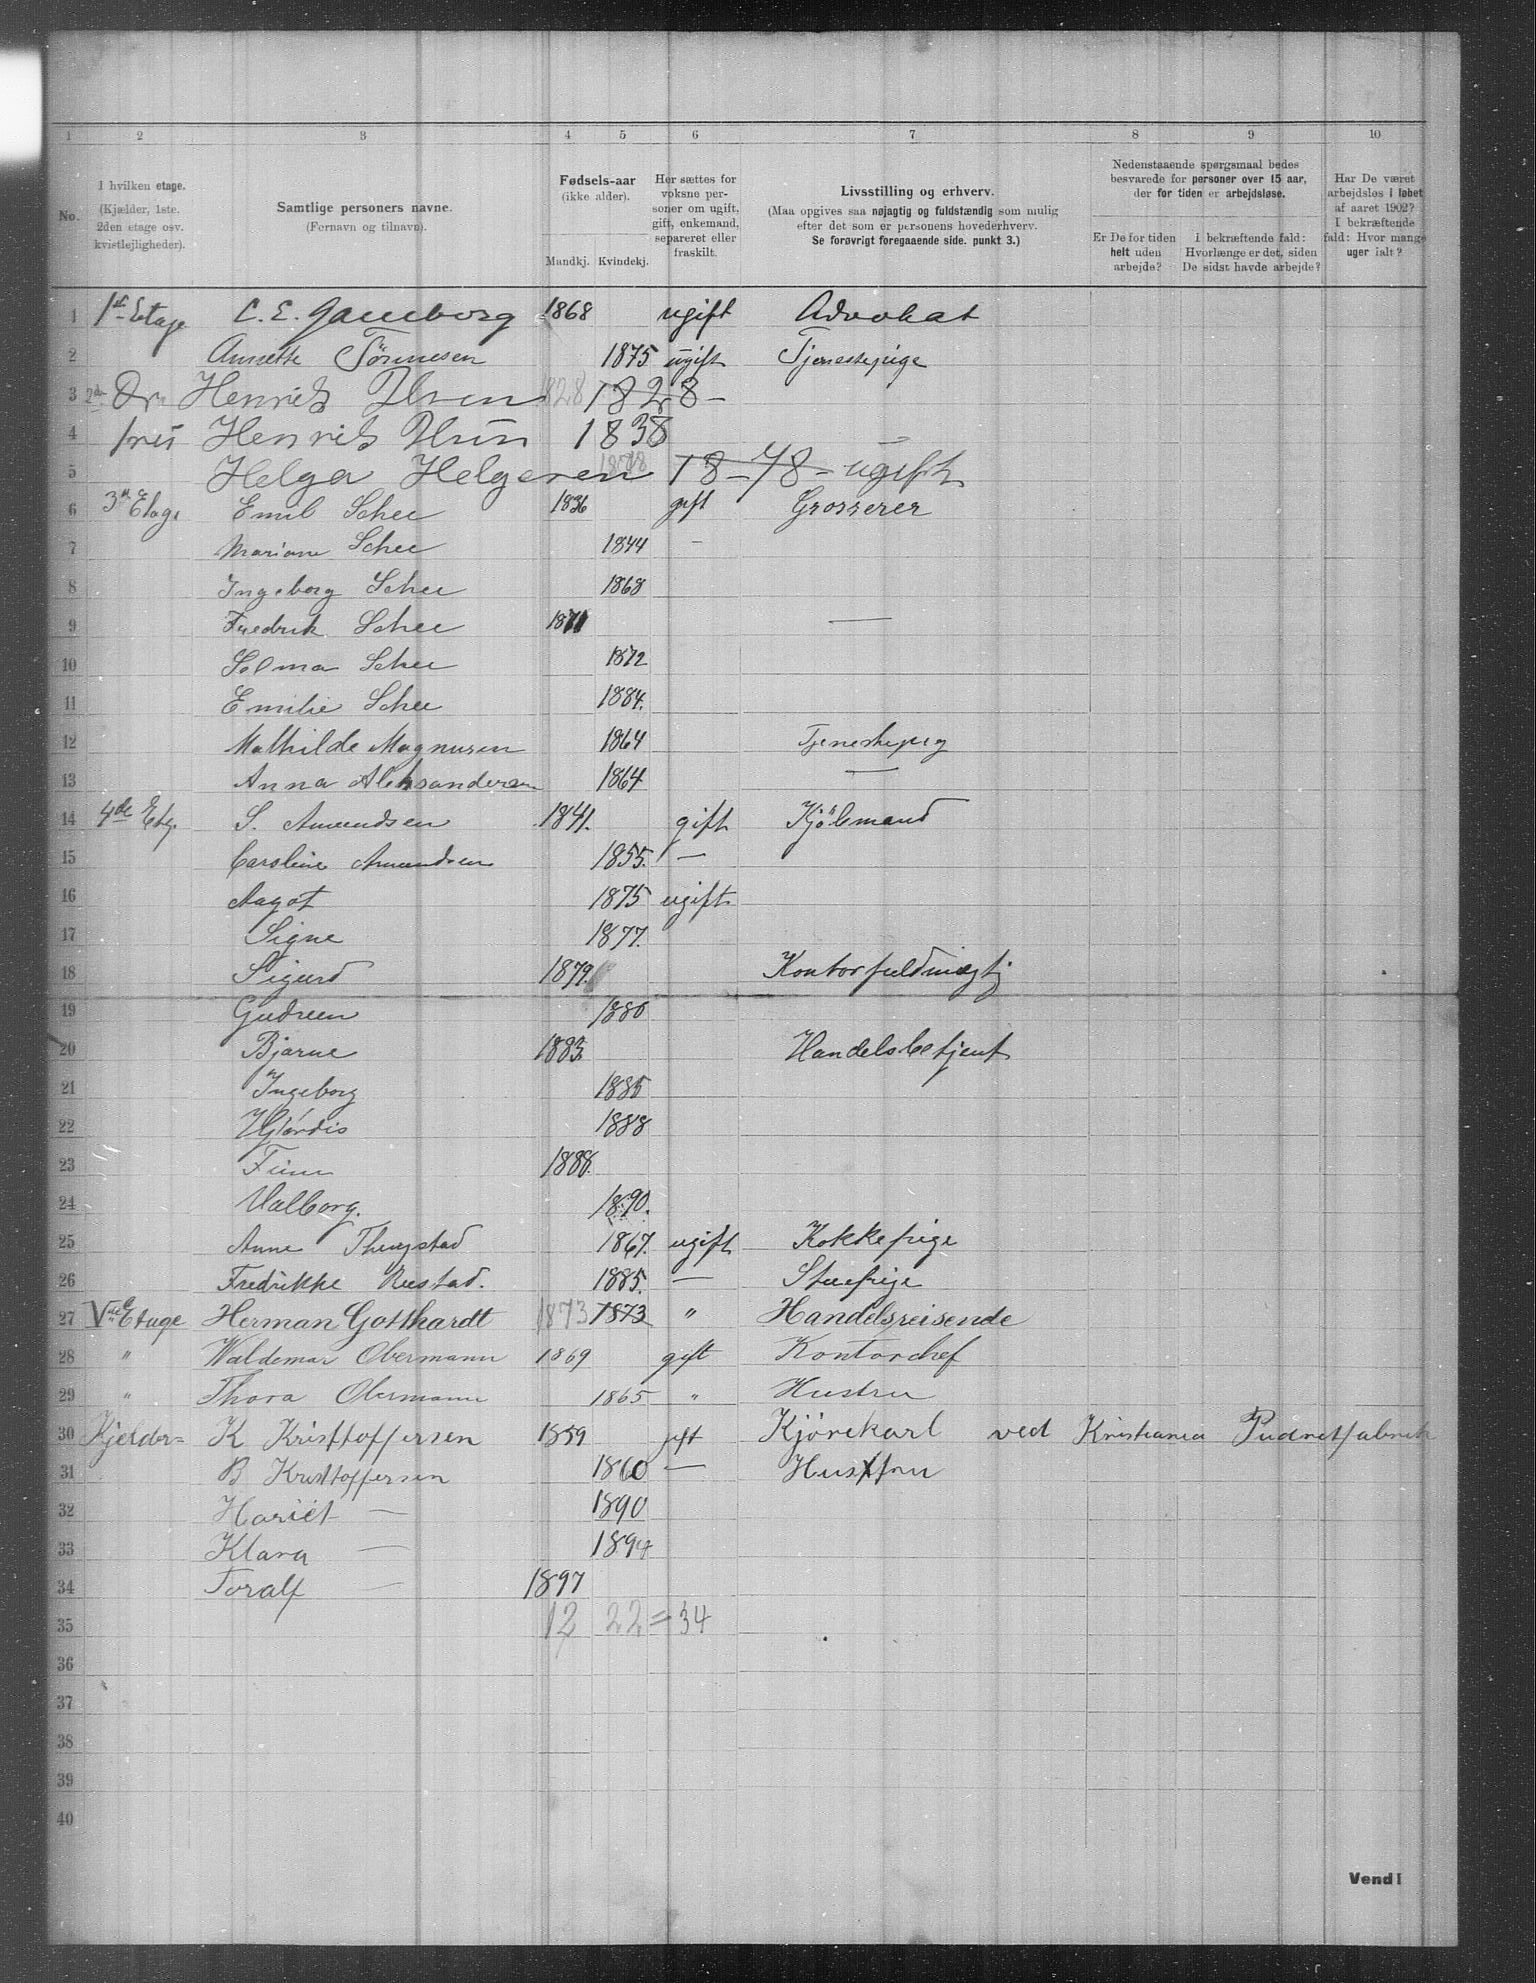 1 2 3 4 5 6 7 8 9 10
No.
I hvilken etage.
(Kjælder, 1ste.
2den etage osv.
kvistlejligheder).
Samtlige personers navne.
(Fornavn og tilnavn).
Fødsels-aar
(ikke alder).
Mandkj. Kvindekj.
Her sættes for
voksne per-
soner om ugift,
gift, enkemand,
separeret eller
fraskilt.
Livsstilling og erhverv.
(Maa opgives saa nøjagtig og fuldstændig som mulig
efter det som er personens hovederhverv.
Se forøvrigt foregaaende side. punkt 3.)
Nedenstaaende spørgsmaal bedes
besvarede for personer over 15 aar,
der for tiden er arbejdsløse.
Er De for tiden
helt uden
arbejde?
I bekræftende fald:
Hvorlænge er det, siden
De sidst havde arbejde?
Har De været
arbejdsløs i løbet
af aaret 1902?
I bekræftende
fald: Hvor mange
uger ialt?
1 1st Etage C. E. Gamborg 1868 ugift Advokat
2 Annette Tönnesen 1875 ugift Tjenestepige
3 Dr Henrik 1828 1828 -
4 Henrik 1838
5 Helga Helgesen 1878 18-78- ugift
6 3die Etage Emil Schee 1836 gift Grosserer
7 Mariane Schee 1844 -
8 Ingeborg Schee 1868
9 Fredrik Schee 1871 —
10 Selma Schee 1872
11 Emilie Schee 1884.
12 Mathilde Magnusen 1864 Tjenestepig
13 Anna Aleksandersen 1864 —
14 4de Etg. S. Amundsen 1841. gift Kjøbmand
15 Caroline Amundsen 1855. —
16 Aagot 1875 ugift
17 Signe 1877.
18 Sigurd 1879. Kontorfuldmægtig
19 Gudrun 1880
20 Bjarne 1883. Handelsbetjent
21 Ingeborg 1885
22 Hjördis 1888
23 Finn 1888.
24 Valborg. 1890.
25 Anne Thingstad 1867. ugift Kokkepige
26 Fredrikke Rustad. 1885. — Stuepige
27 Vte Etage Herman Gotthardt 1873 1873 " Handelsreisende
28 " Waldemar Obermann 1869 gift Kontorchef
29 " Thora Obermann 1865 " Hustru
30 Kjelder= K Kristtoffersen 1859 gift Kjörekarl ved Kristiania Pudretfabrik
31 B Kristtoffersen 1860 — Hustru
32 Hariet — 1890
33 Klara — 1894
34 Toralf — 1897
35 12 22 = 34
36
37
38
39
40
Vend!